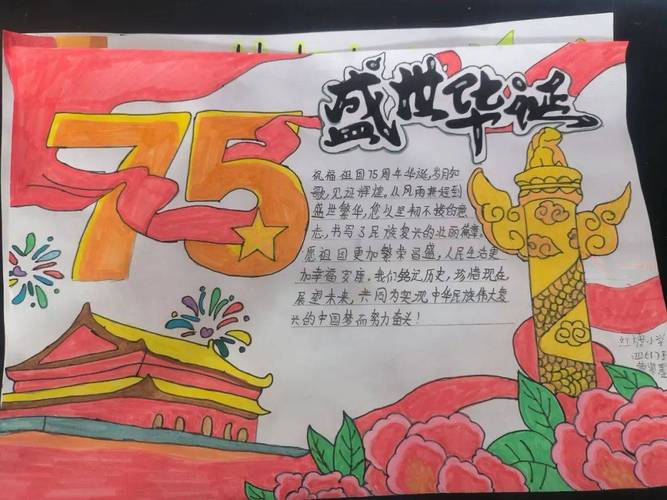 75
盛世华诞
祝福祖国75周年华诞,岁月如
歌,见证辉煌。从风雨兼程到
盛世繁华,您以坚韧不拔的意
志,书写了民族复兴的壮丽篇章。
愿祖国更加繁荣昌盛,人民生活更
加幸福安康。我们铭记历史,珍惜现在
展望未来,共同为实现中华民族伟大复
兴的中国梦而努力奋斗!
小学
四(1)班